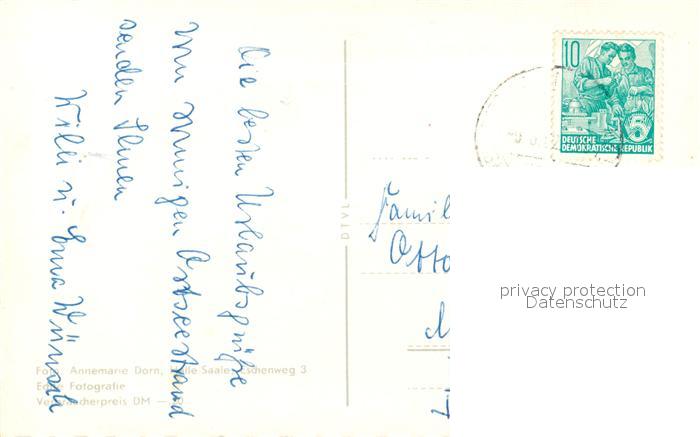 Die besten Urlaubsgrüße
vom sonnigen Ostseestrand
senden Ihnen
Willi u. Erna Wünsch
Foto: Annemarie Dorn, Halle-Saale, Eschenweg 3
Echte Fotografie
Verbraucherpreis DM
DTVL
10
DEUTSCHE
DEMOKRATISCHE REPUBLIK
5
Famil
Otto
privacy protection
Datenschutz